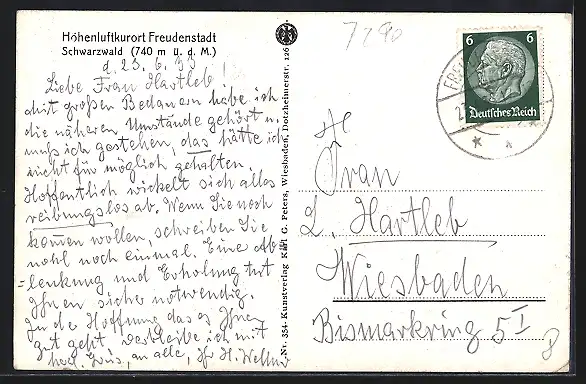 Höhenluftkurort Freudenstadt
Schwarzwald (740 m ü. d. M.)
d. 23. 6. 33
Liebe Frau Hartleb!
Mit großen Bedauern habe ich
die näheren Umstände gehört u.
muß ich gestehen, das hätte ich
nicht für möglich gehalten.
Hoffentlich wickelt sich alles
reibungslos ab. Wenn Sie noch
kommen wollen, schreiben Sie
wohl noch einmal. Eine Ab-
lenkung und Erholung tut
Ihnen sicher notwendig.
In de Hoffnung das es Ihnen
gut geht, verbleibe ich mit
herzl. Grüß, an alle, Ihr H.
Nr. 354. Kunstverlag Karl G. Peters, Wiesbaden, Dotzheimerstr. 126
7290
6 6
Deutsches Reich
Frau
L. Hartleb
Wiesbaden
Bismarkring 5 I
8